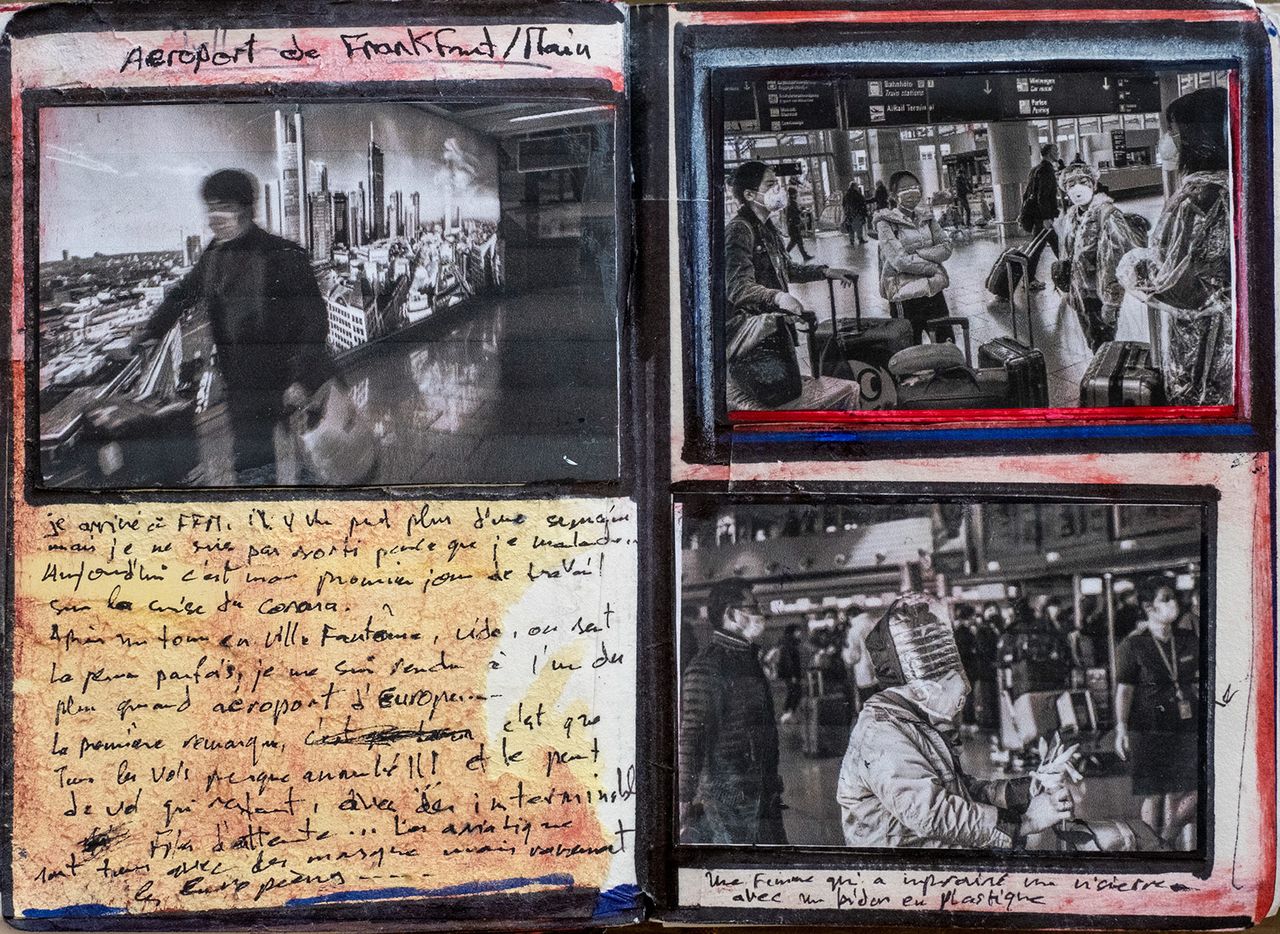 Aeroport de FrankFurt/Main
je arrivé à FFM. il y un peut plus d'une semain
mais je ne suis pas sorti parce que je malade...
Aujourd'hui c'est mon premier jour de travail
sur la crise du corona.
Après un tour en ville Fantôme, vide, on sent
la peur parfois, je me suis rendu à l'un des
plus quand aéroport d'Europe....
la première remarque, c'est que
Tous les vols presque annulé!!! et le peut
de vol qui restent, avec des interminable
Files d'attente... Les asiatique
sont tous avec des masque mais rarement
les Européens -----
Bahnhöfe
Train stations
AIRail Terminal
Mietwagen
Car rental
Parken
Parking
Une Femme qui a improvisé une visière
avec un bidon en plastique